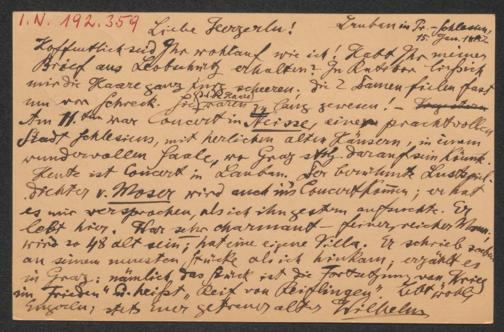 I.N. 192.359
Lauban in Pr.-Schlesien,
15. Jan. 1882
Liebe Jeezerln!
Hoffentlich seid Ihr wohlauf wie ich! Habt Ihr meinen
Brief aus Leobschütz erhalten? In Ratibor ließ ich
mir die Haare ganz kurz scheeren; die 2 Damen fielen fast
um vor Schreck. Sie waren zu lang gewesen! –
Am 11ten war Concert in Neisse, einer prachtvollen
Stadt Schlesiens, mit herlichen alten Häusern, in einem
wundervollen Saale, wo Graz stolz darauf sein könnte.
Heute ist Concert in Lauban. Der berühmte Lustspiel-
dichter v. Moser wird auch ins Concert kommen; er hat
es mir versprochen, als ich ihn gestern aufsuchte. Er
lebt hier. War sehr charmant – feiner, reicher Mann,
wird so 48 alt sein; hat eine eigene Villa. Er schrieb
an seinem neuesten Stücke als ich hinkam; erzählt es
in Graz: nämlich das Stück ist die Fortsetzung von Krieg
im Frieden" u. heißt „Reif von Reiflingen". Lebt wohl
stets Euer getreuer alter Wilhelm